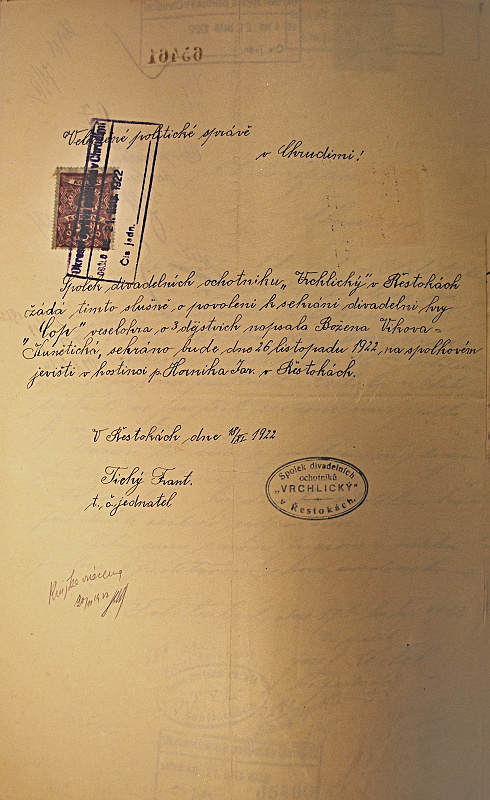 Velectěné politické správě
v Chrudimi!
21. listop. 1922
Čís. jedn.
Spolek divadelních ochotniku „Vrchlický" v Řestokách
žádá timto slušně o povoleni k sehráni divadelni hry
„Cop" veselohra o 3 dějstvich napsala Božena Viková-
Kunětická, sehráno bude dne 26 listopadu 1922, na spolkovém
jevišti v hostinci p. Hornika Jar. v Řestokách.
V Řestokách dne 18/XI 1922
Tichý Frant.
t. č. jednatel
Spolek divadelních
ochotníků
„VRCHLICKÝ"
v Řestokách.